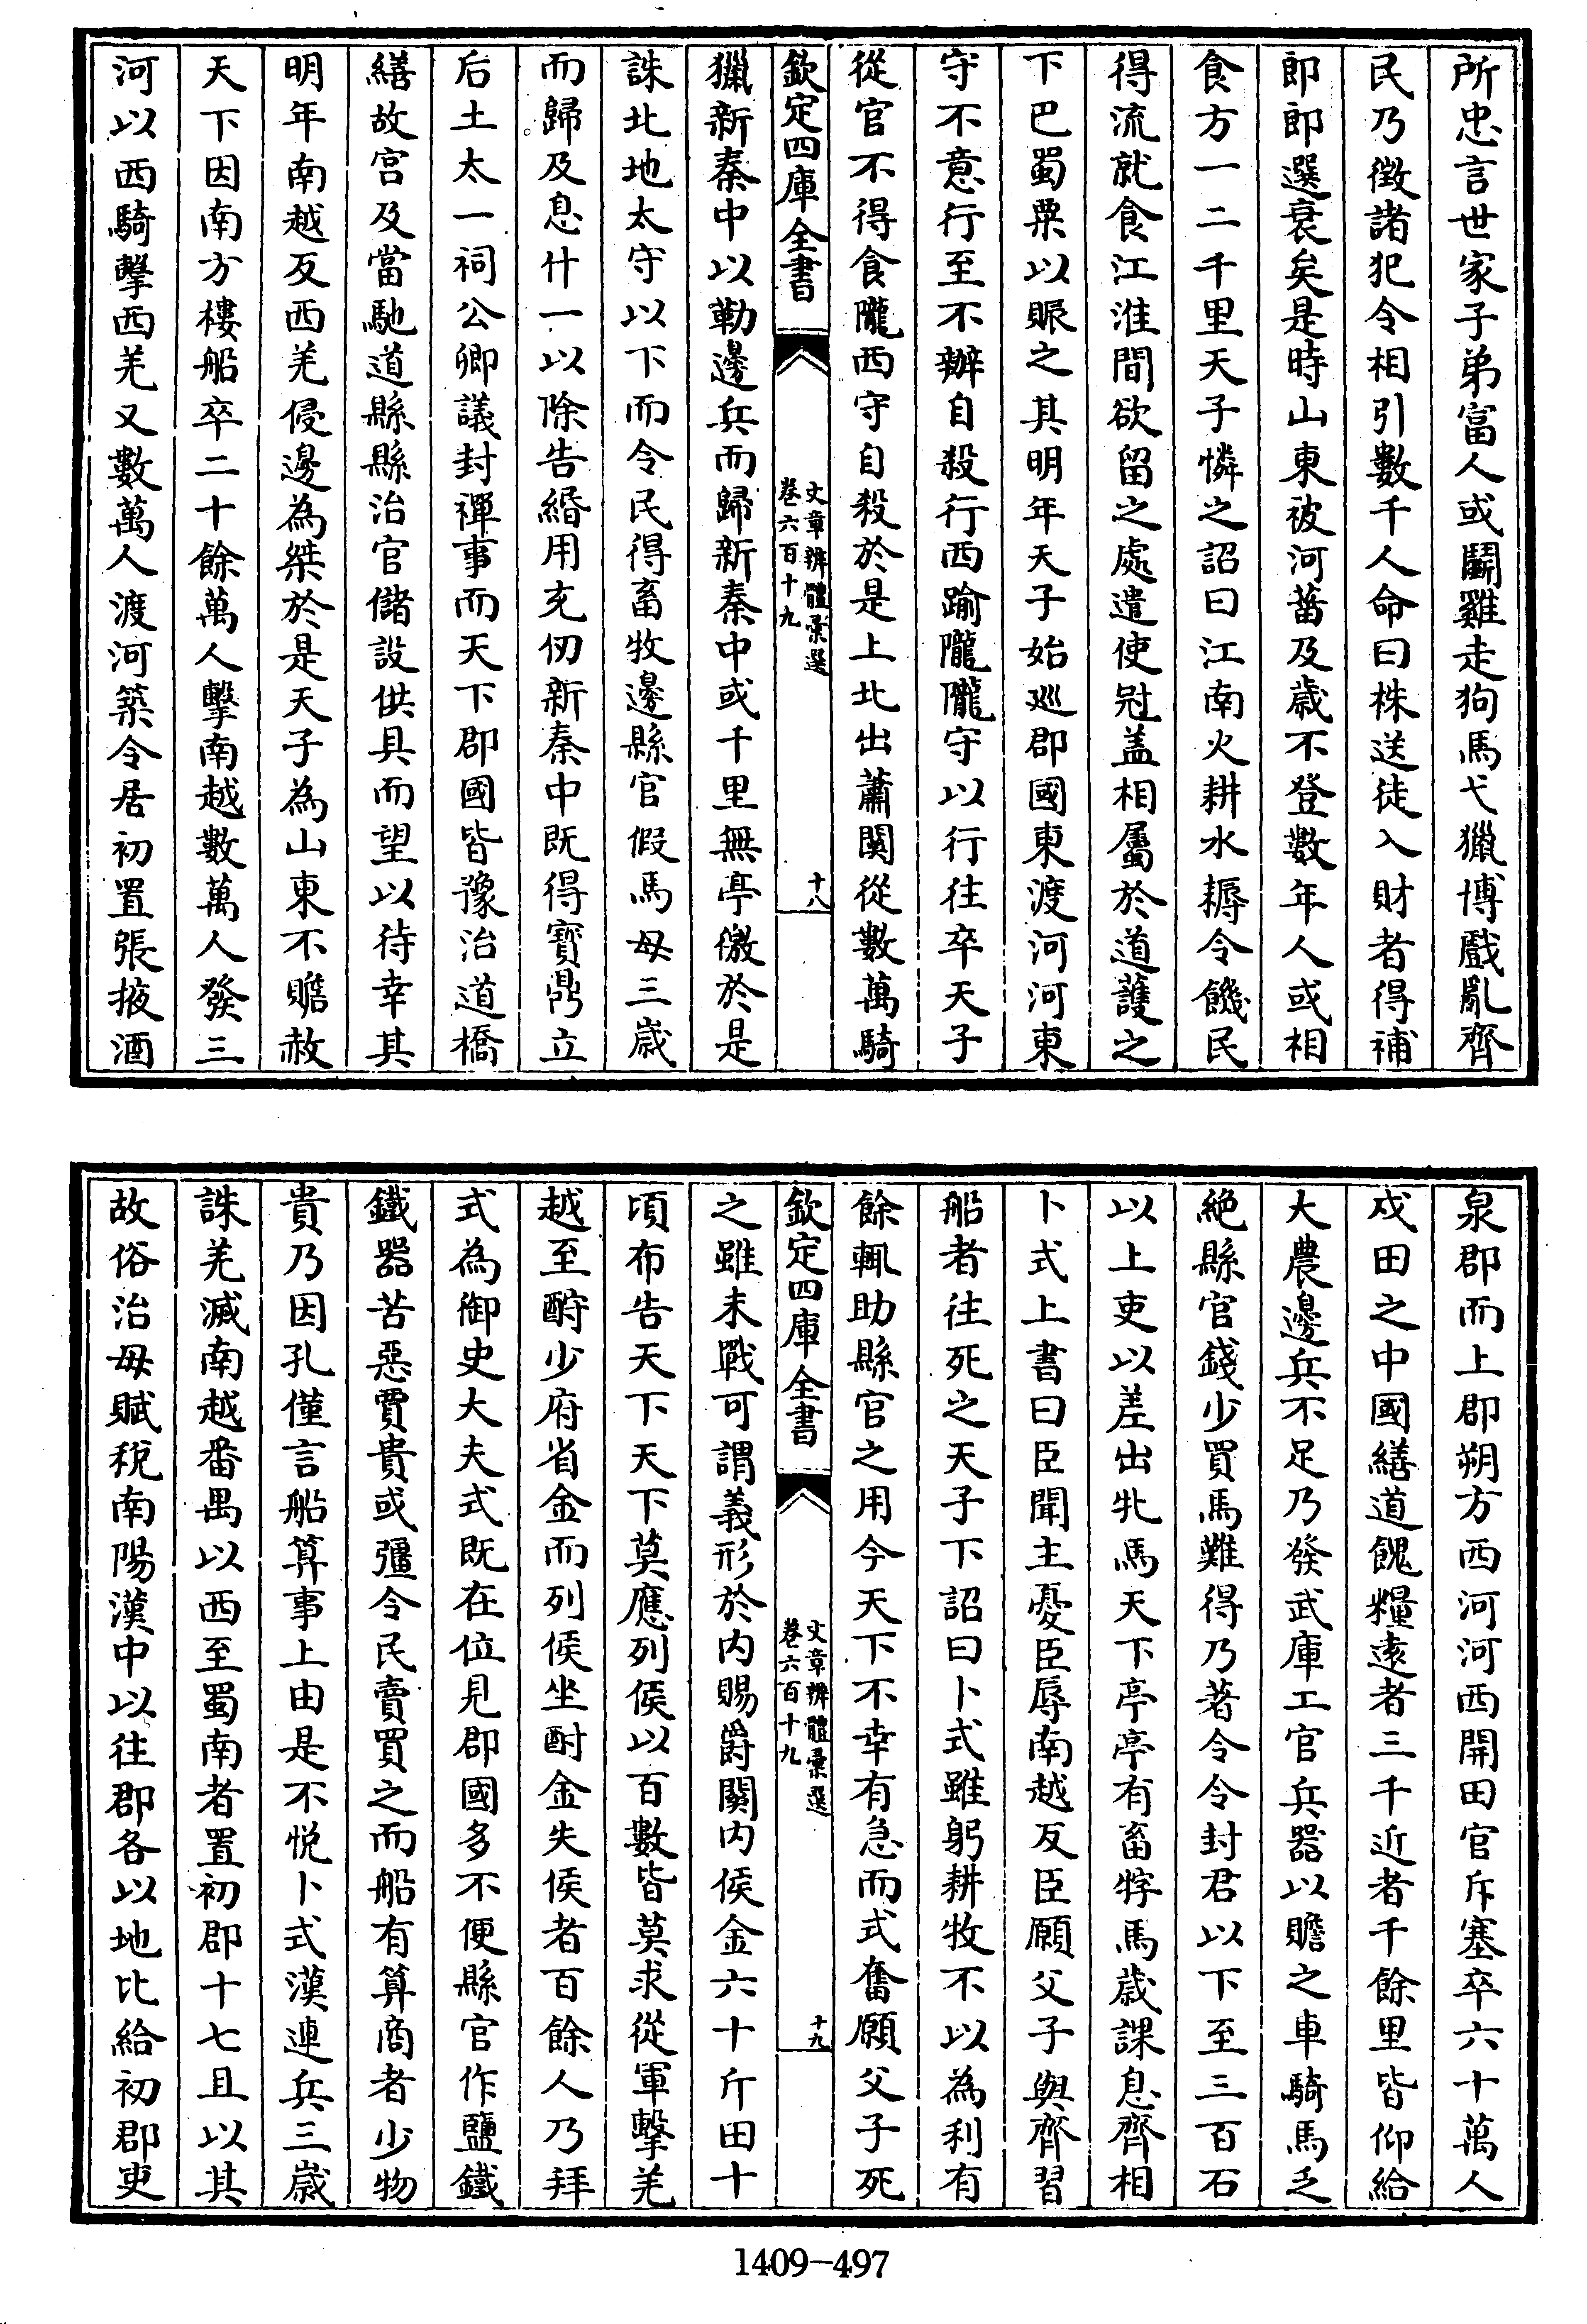 所忠言世家子弟富人或鬬雞走狗馬弋獵博戲亂齊
民乃徵諸犯令相引數千人命曰株送徒入財者得補
郎郎選衰矣是時山東被河菑及歳不登數年人或相
食方一二千里天子憐之詔曰江南火耕水耨令饑民
得流就食江淮間欲留之處遣使冠盖相屬於道護之
下巴蜀粟以賑之其明年天子始廵郡國東渡河河東
守不意行至不辦自殺行西踰隴隴守以行往卒天子
從官不得食隴西守自殺於是上北出蕭關從數萬騎
欽定四庫全書
文章辨體彚選
卷六百十九
十八
獵新秦中以勒邊兵而歸新秦中或千里無亭徼於是
誅北地太守以下而令民得畜牧邊縣官假馬母三歳
而歸及息什一以除告緡用充仞新秦中既得寳鼎立
后土太一祠公卿議封禪事而天下郡國皆豫治道橋
繕故宫及當馳道縣縣治官儲設供具而望以待幸其
明年南越反西羌侵邊為桀於是天子為山東不贍赦
天下因南方樓船卒二十餘萬人擊南越數萬人發三
河以西騎擊西羌又數萬人渡河築令居初置張掖酒
泉郡而上郡朔方西河河西開田官斥塞卒六十萬人
戍田之中國繕道餽糧逺者三千近者千餘里皆仰給
大農邊兵不足乃發武庫工官兵器以贍之車騎馬乏
絶縣官錢少買馬難得乃著令令封君以下至三百石
以上吏以差出牝馬天下亭亭有畜牸馬歳課息齊相
卜式上書曰臣聞主憂臣辱南越反臣願父子與齊習
船者往死之天子下詔曰卜式雖躬耕牧不以為利有
餘輒助縣官之用今天下不幸有急而式奮願父子死
欽定四庫全書
文章辨體彚選
卷六百十九
十九
之雖未戰可謂義形於内賜爵關内侯金六十斤田十
頃布告天下天下莫應列侯以百數皆莫求從軍擊羌
越至酎少府省金而列侯坐酎金失侯者百餘人乃拜
式為御史大夫式既在位見郡國多不便縣官作鹽鐵
鐵器苦惡賈貴或彊令民賣買之而船有算商者少物
貴乃因孔僅言船算事上由是不悦卜式漢連兵三歳
誅羌滅南越番禺以西至蜀南者置初郡十七且以其
故俗治毋賦税南陽漢中以往郡各以地比給初郡吏
1409-497